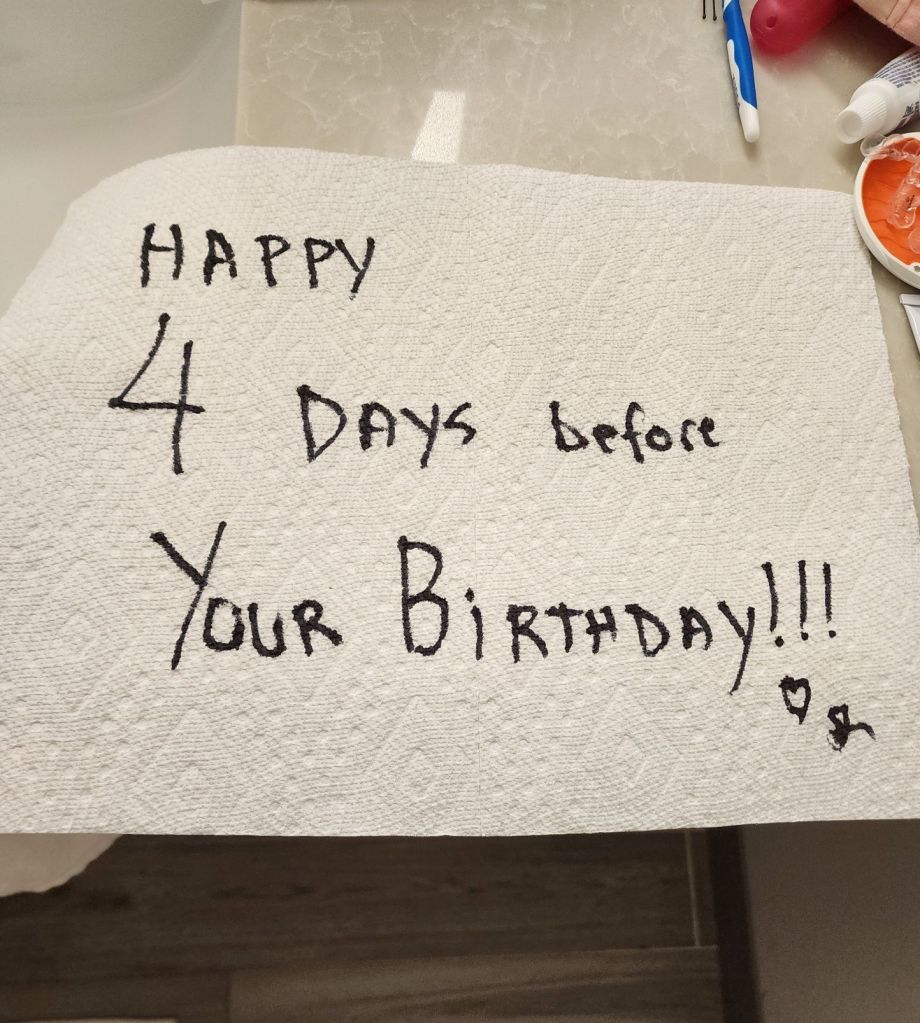 HAPPY
4 DAYS before
YOUR BiRTHDAY!!!